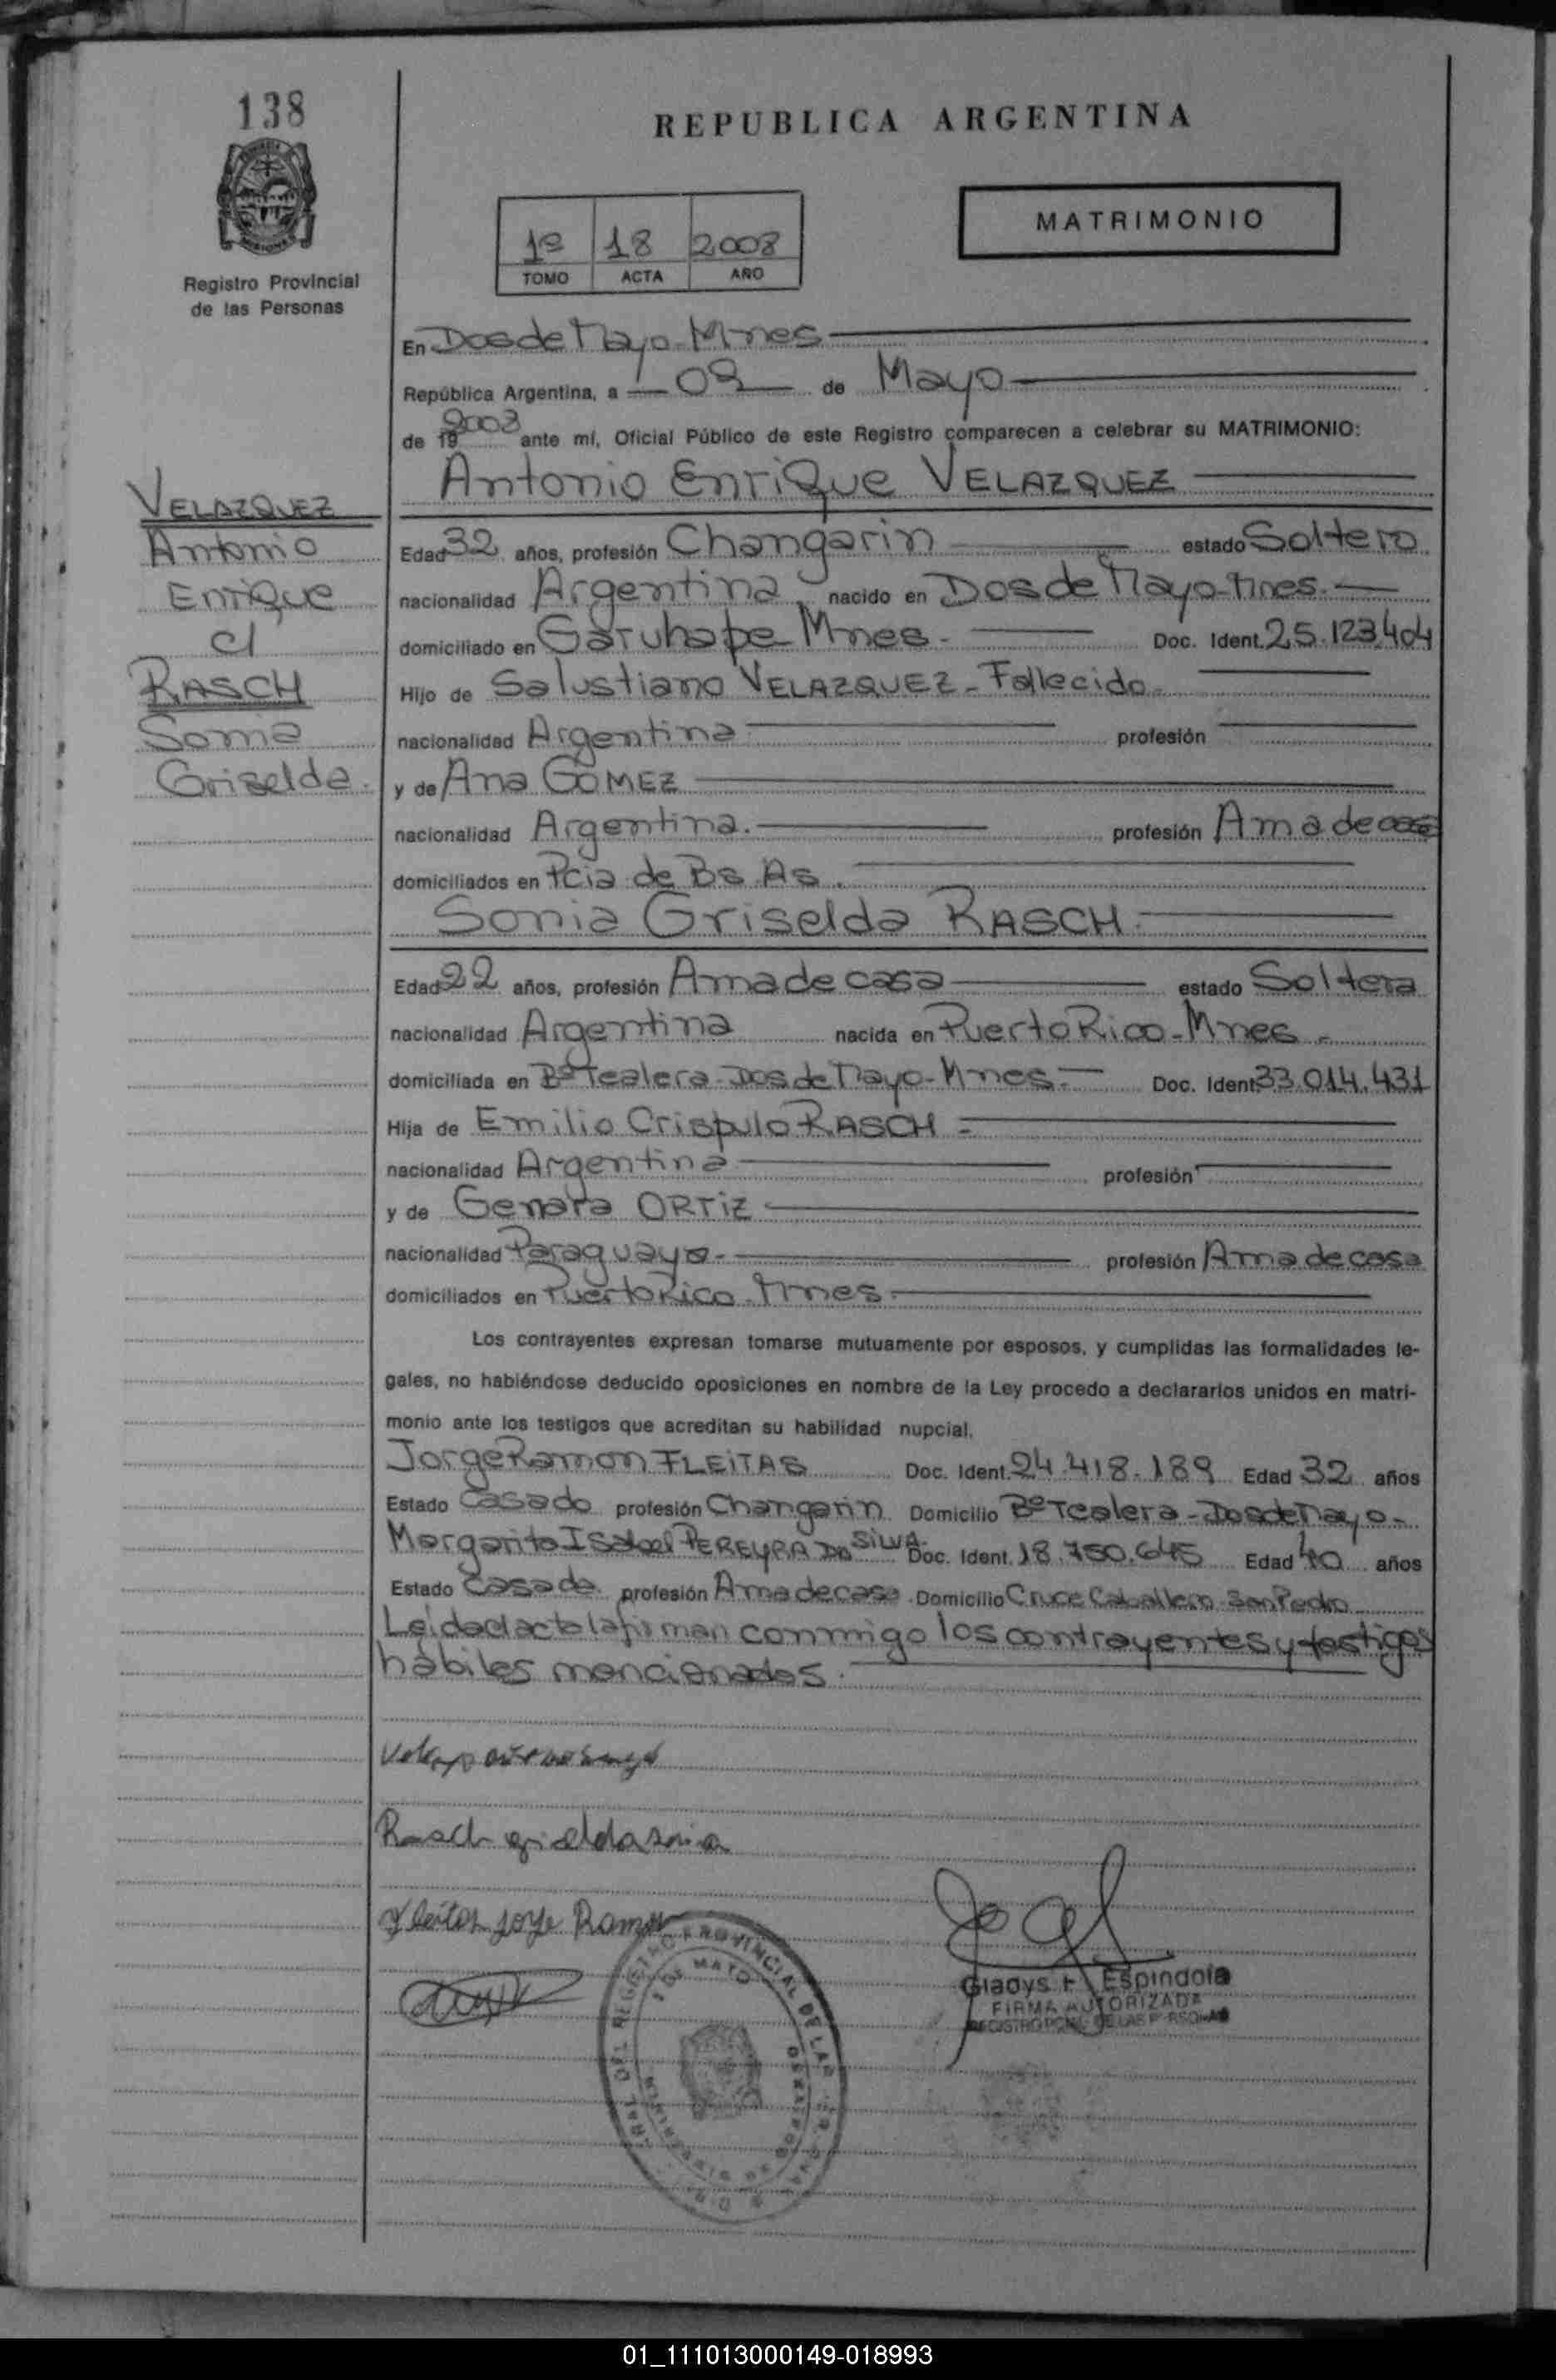 138
REPUBLICA ARGENTINA
MATRIMONIO
1º 18 2008
TOMO ACTA AÑO
Registro Provincial
de las Personas
En Dos de Mayo - Mnes
República Argentina, a 09 de Mayo
de 19 2008 ante mí, Oficial Público de este Registro comparecen a celebrar su MATRIMONIO:
Antonio Enrique VELAZQUEZ
VELAZQUEZ
Antonio
Enrique
c/
RASCH
Sonia
Griselda.
Edad 32 años, profesión Changarin estado Soltero
nacionalidad Argentina nacido en Dos de Mayo-Mnes.
domiciliado en Garuhape Mnes. Doc. Ident. 25.123.404
Hijo de Salustiano VELAZQUEZ - Fallecido
nacionalidad Argentina profesión
y de Ana GOMEZ
nacionalidad Argentina. profesión Ama de casa
domiciliados en Pcia de Bs As.
Sonia Griselda RASCH.
Edad 22 años, profesión Ama de casa estado Soltera
nacionalidad Argentina nacida en Puerto Rico - Mnes.
domiciliada en Bº Tealera - Dos de Mayo - Mnes. Doc. Ident. 33.014.431
Hija de Emilio Crispulo RASCH
nacionalidad Argentina profesión
y de Genara ORTIZ
nacionalidad Paraguaya profesión Ama de casa
domiciliados en Puerto Rico - Mnes.
Los contrayentes expresan tomarse mutuamente por esposos, y cumplidas las formalidades le-
gales, no habiéndose deducido oposiciones en nombre de la Ley procedo a declararlos unidos en matri-
monio ante los testigos que acreditan su habilidad nupcial.
Jorge Ramon FLEITAS Doc. Ident. 24.418.189 Edad 32 años
Estado Casado profesión Changarin Domicilio Bº Tealera - Dos de Mayo -
Margarita Isabel PEREYRA DA SILVA Doc. Ident. 18.750.645 Edad 40 años
Estado Casada profesión Ama de casa Domicilio Cruce Caballero - San Pedro
Leida el acta la firman conmigo los contrayentes y testigos
hábiles mencionados.
Rasch griselda sonia
Fleitas jorge Ramon
REGISTRO PROVINCIAL DE LAS
2 DE MAYO
Gladys Espindola
FIRMA AUTORIZADA
REGISTRO PCIAL DE LAS PERSONAS
01_111013000149-018993